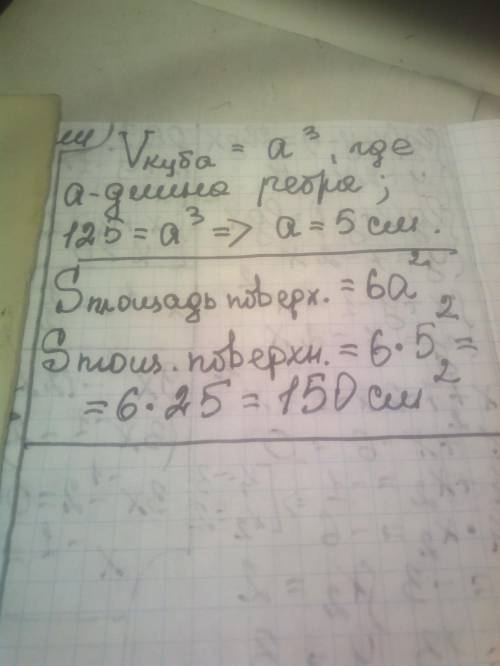 V куба = a³, где
a - длина ребра;
125 = a³ => a = 5 см.
S площадь поверх. = 6a²
S площ. поверхн. = 6·5² =
= 6·25 = 150 см²